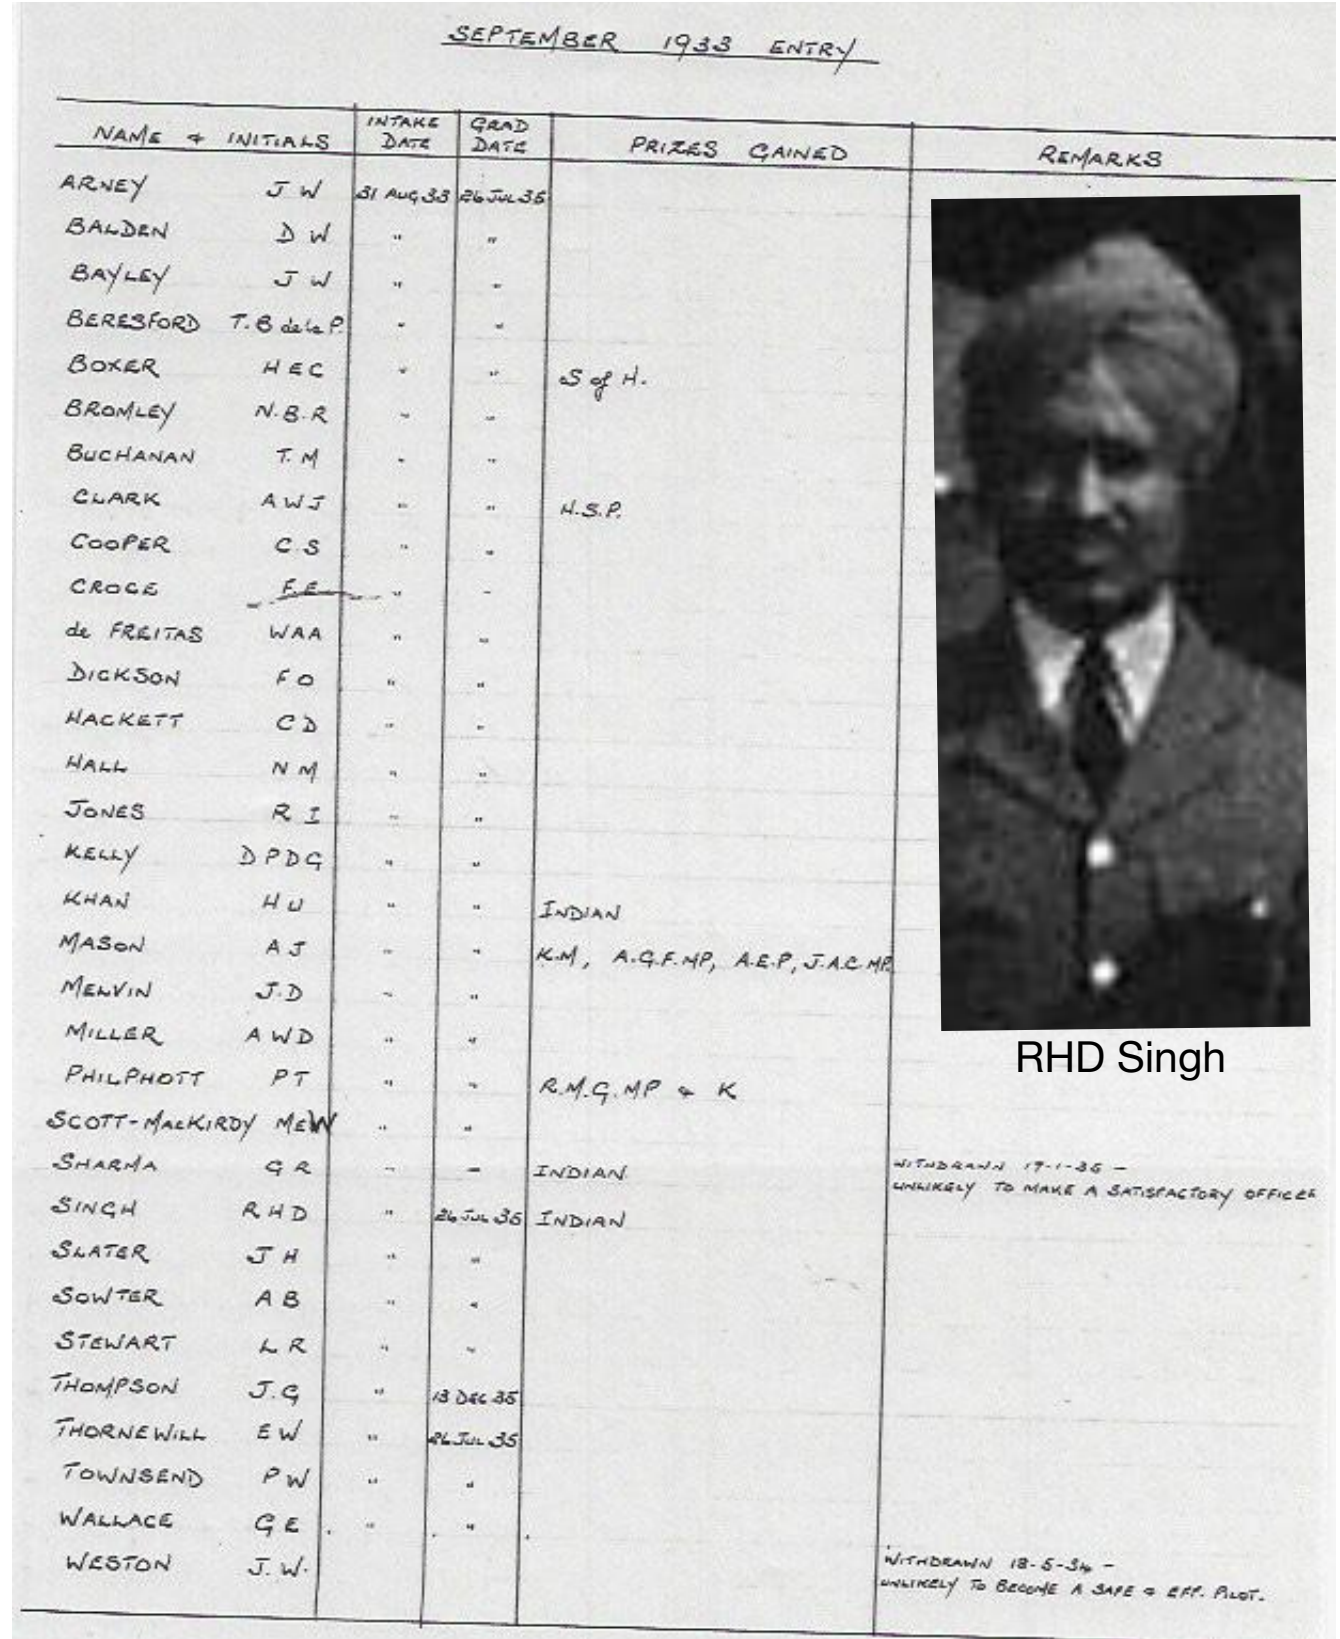 SEPTEMBER 1933 ENTRY
NAME & INITIALS INTAKE DATE GRAD DATE PRIZES GAINED REMARKS
ARNEY J W 31 AUG 33 26 JUL 35
BALDEN D W " "
BAYLEY J W " "
BERESFORD T.B de la P. " "
BOXER H E C " " S of H.
BROMLEY N.B.R " "
BUCHANAN T.M " "
CLARK A W J " " H.S.P.
COOPER C S " "
CROCE F.E " "
de FREITAS WAA " "
DICKSON F O " "
HACKETT C D " "
HALL N M " "
JONES R I " "
KELLY D P D G " "
KHAN H U " " INDIAN
MASON A J " " K.M, A.G.F.MP, A.E.P, J.A.C.MP.
MELVIN J.D " "
MILLER A W D " "
PHILPHOTT P T " " R.M.G.MP & K
SCOTT-MACKIRDY MEW " "
SHARMA G R " - INDIAN WITHDRAWN 17-1-35 -
UNLIKELY TO MAKE A SATISFACTORY OFFICER
SINGH R H D " 26 JUL 35 INDIAN
SLATER J H " "
SOWTER A B " "
STEWART L R " "
THOMPSON J.G " 13 DEC 35
THORNEWILL E W " 26 JUL 35
TOWNSEND P W " "
WALLACE G E " "
WESTON J.W. WITHDRAWN 18-5-34 -
UNLIKELY TO BECOME A SAFE & EFF. PILOT.
RHD Singh